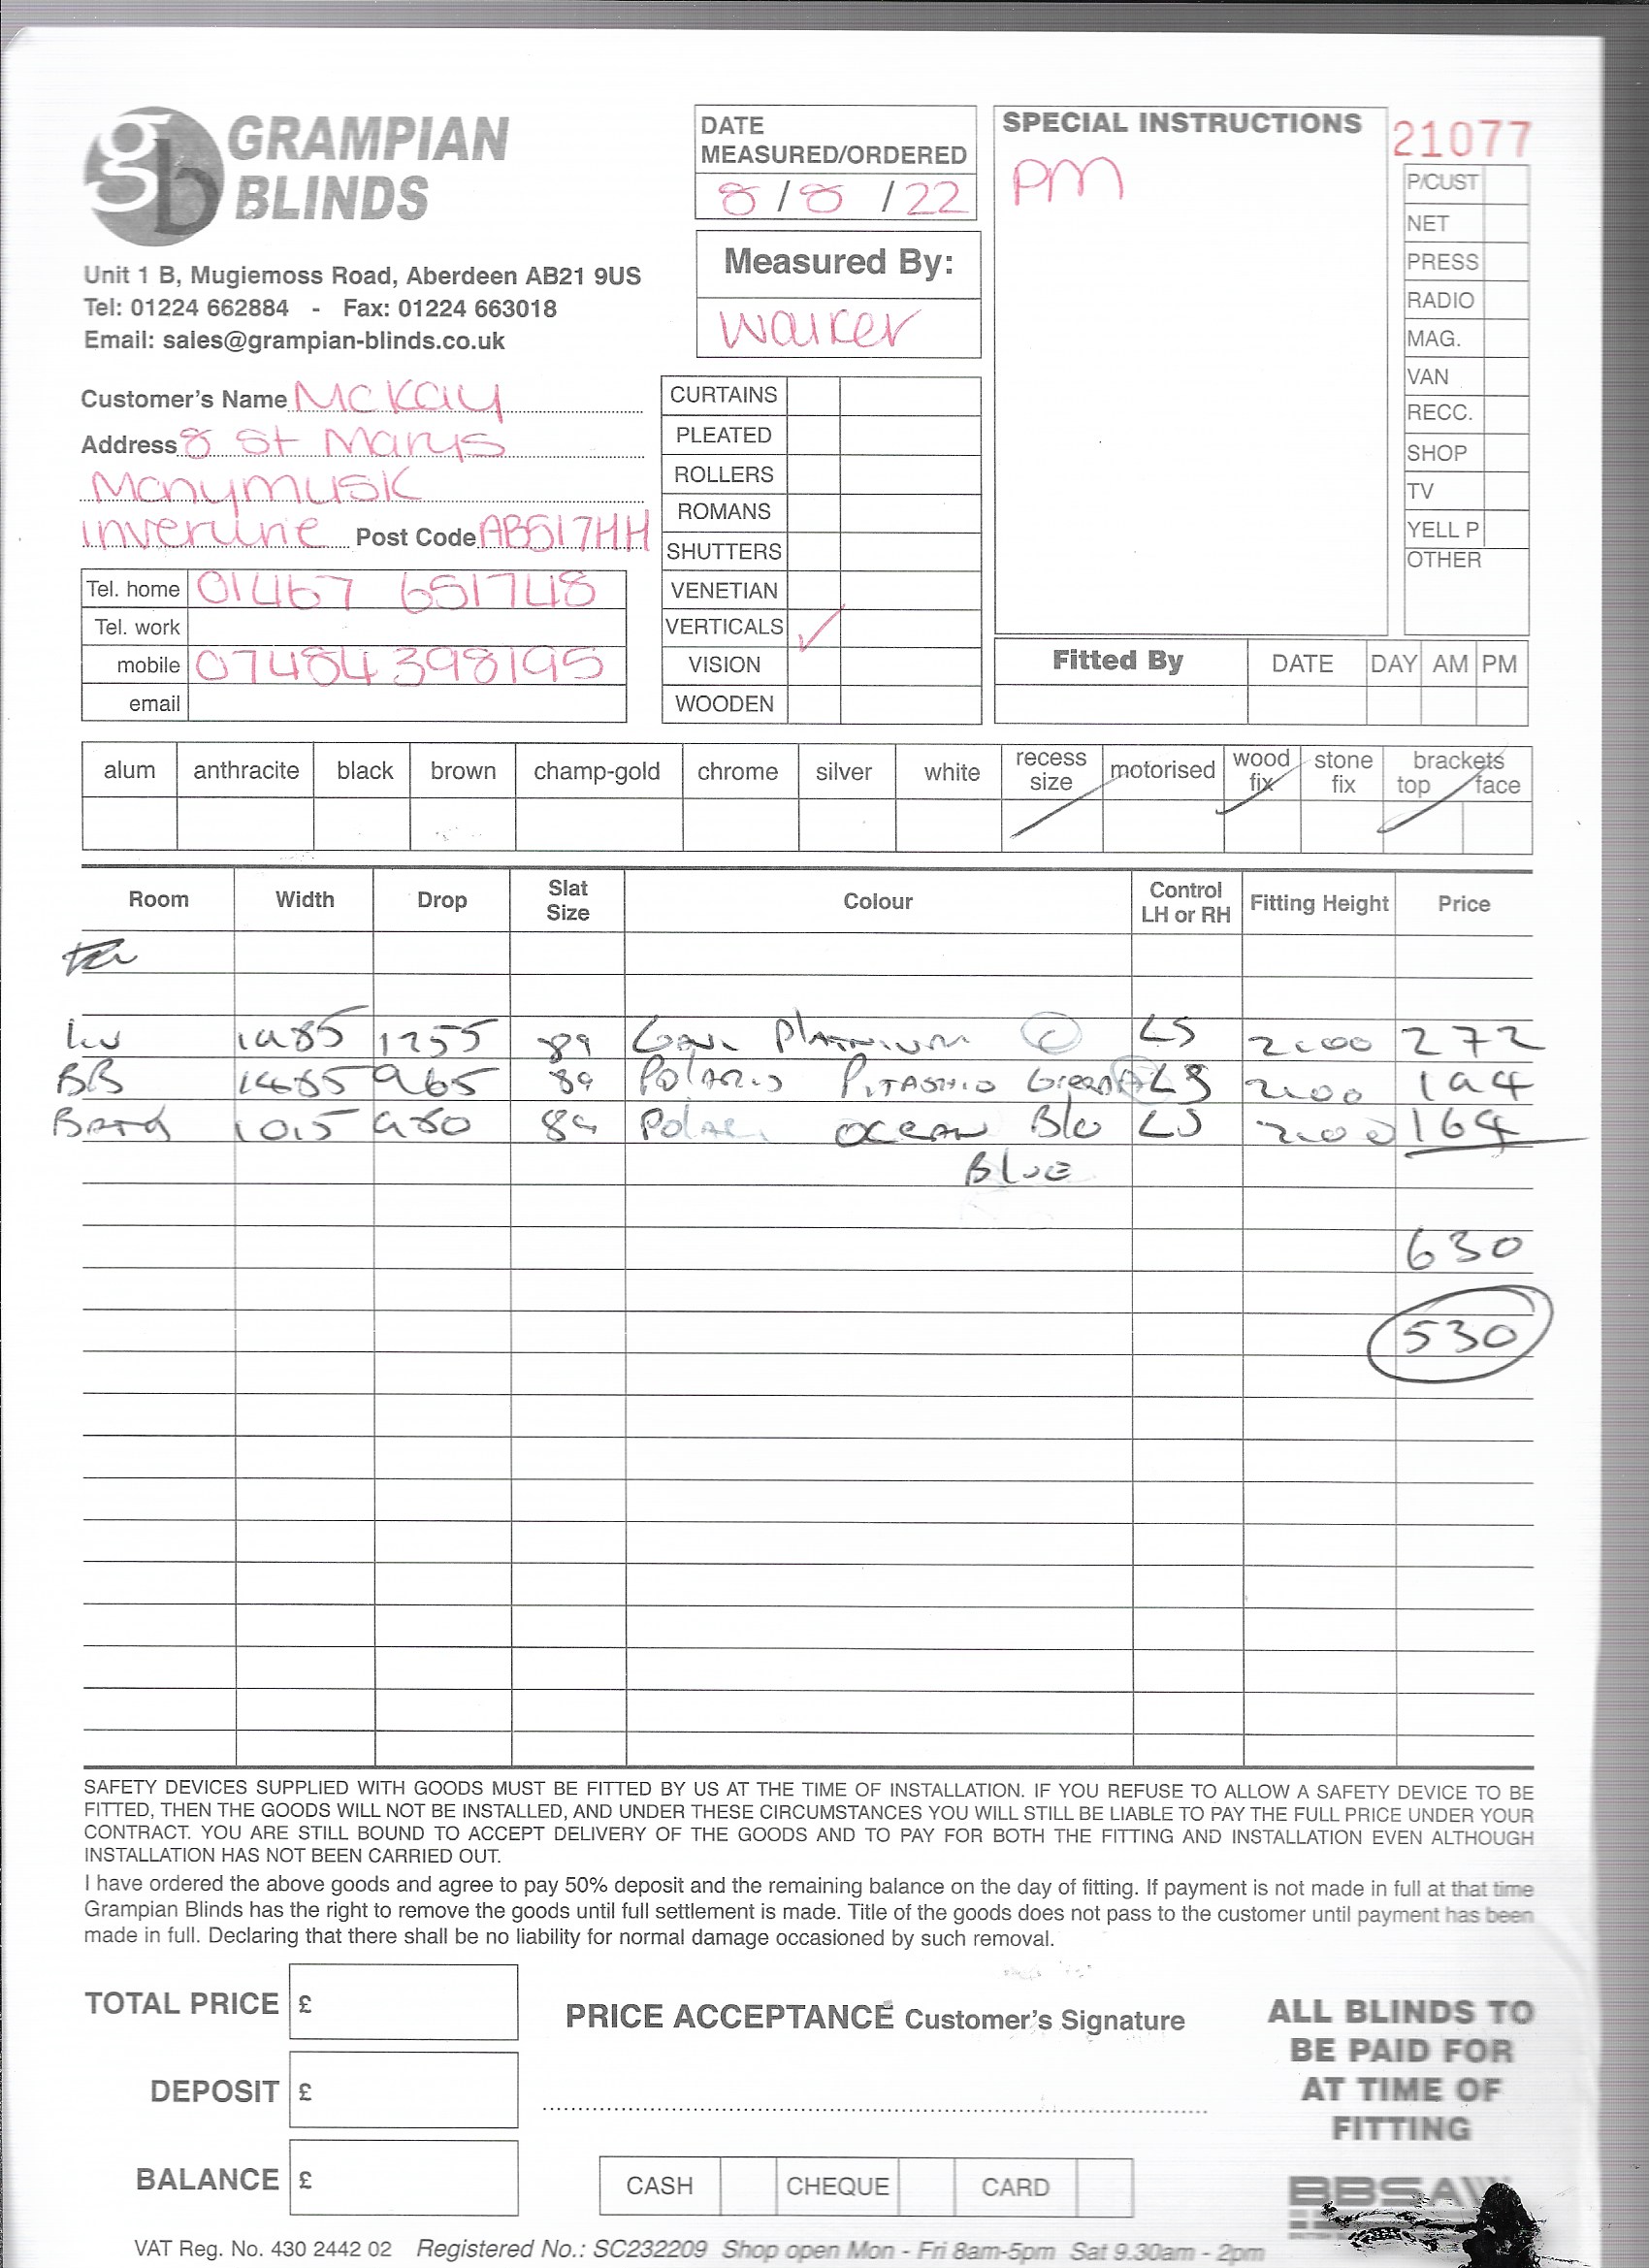 gb GRAMPIAN BLINDS
Unit 1 B, Mugiemoss Road, Aberdeen AB21 9US
Tel: 01224 662884 - Fax: 01224 663018
Email: sales@grampian-blinds.co.uk
Customer's Name McKay
Address 8 St Marys
Monymusk
Inverurie Post Code AB517HH
Tel. home 01467 651748
Tel. work
mobile 07484 398195
email
DATE
MEASURED/ORDERED
8 / 8 / 22
Measured By:
Walker
CURTAINS
PLEATED
ROLLERS
ROMANS
SHUTTERS
VENETIAN
VERTICALS ✓
VISION
WOODEN
SPECIAL INSTRUCTIONS
PM
21077
P/CUST
NET
PRESS
RADIO
MAG.
VAN
RECC.
SHOP
TV
YELL P
OTHER
Fitted By DATE DAY AM PM
alum anthracite black brown champ-gold chrome silver white recess size motorised wood fix stone fix brackets top face
Room Width Drop Slat Size Colour Control LH or RH Fitting Height Price
1985 1255 89 Platinium C LS 2000 272
BB 1485 965 89 Polaris Pitashio Green LS 2100 194
1015 980 89 Ocean Blu LS 2000 164
Blue
630
530
SAFETY DEVICES SUPPLIED WITH GOODS MUST BE FITTED BY US AT THE TIME OF INSTALLATION. IF YOU REFUSE TO ALLOW A SAFETY DEVICE TO BE
FITTED, THEN THE GOODS WILL NOT BE INSTALLED, AND UNDER THESE CIRCUMSTANCES YOU WILL STILL BE LIABLE TO PAY THE FULL PRICE UNDER YOUR
CONTRACT. YOU ARE STILL BOUND TO ACCEPT DELIVERY OF THE GOODS AND TO PAY FOR BOTH THE FITTING AND INSTALLATION EVEN ALTHOUGH
INSTALLATION HAS NOT BEEN CARRIED OUT.
I have ordered the above goods and agree to pay 50% deposit and the remaining balance on the day of fitting. If payment is not made in full at that time
Grampian Blinds has the right to remove the goods until full settlement is made. Title of the goods does not pass to the customer until payment has been
made in full. Declaring that there shall be no liability for normal damage occasioned by such removal.
TOTAL PRICE £
DEPOSIT £
BALANCE £
PRICE ACCEPTANCE Customer's Signature
CASH CHEQUE CARD
ALL BLINDS TO
BE PAID FOR
AT TIME OF
FITTING
BBSA
VAT Reg. No. 430 2442 02 Registered No.: SC232209 Shop open Mon - Fri 8am-5pm Sat 9.30am - 2pm